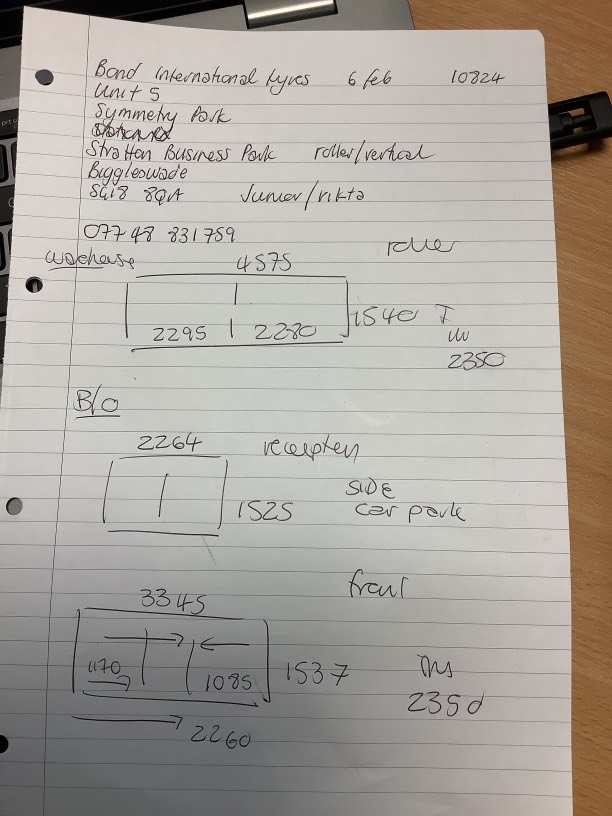 Bond International tyres 6 feb 10824
Unit 5
Symmetry Park
Stratton Business Park roller/vertical
Biggleswade
SG18 8QA Junior/rikta
07748 831759
warehouse 4575 roller
2295 2280 1540 I
2350
B/O
2264 reception
1525 SIDE
car park
front
3345
1170 1085 1537
2350
2260